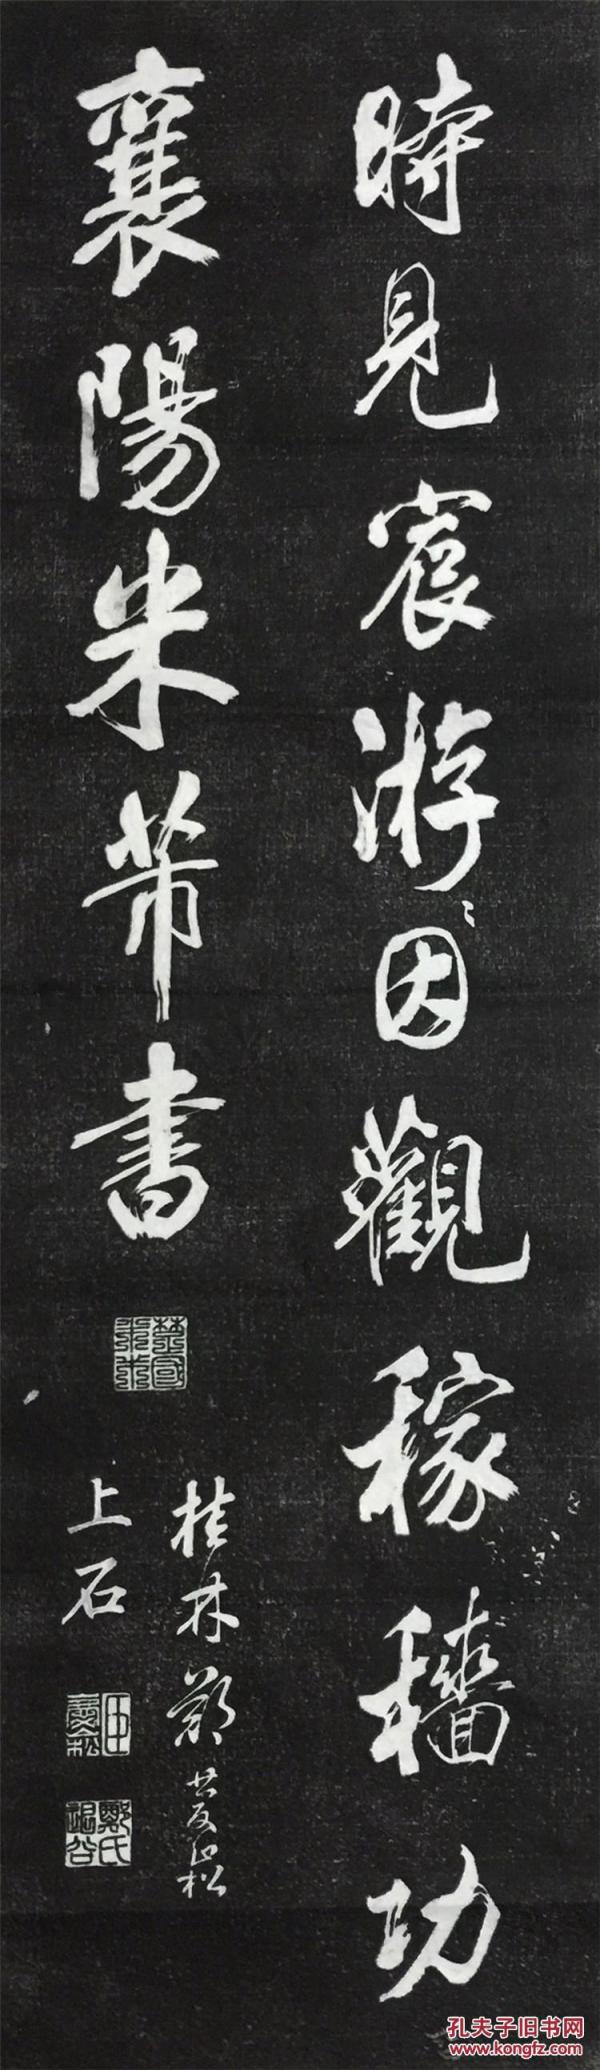 時見宸游因觀稼穡功
襄陽米芾書
桂林鄭
上石
鄭氏
孔夫子旧书网
www.kongfz.com